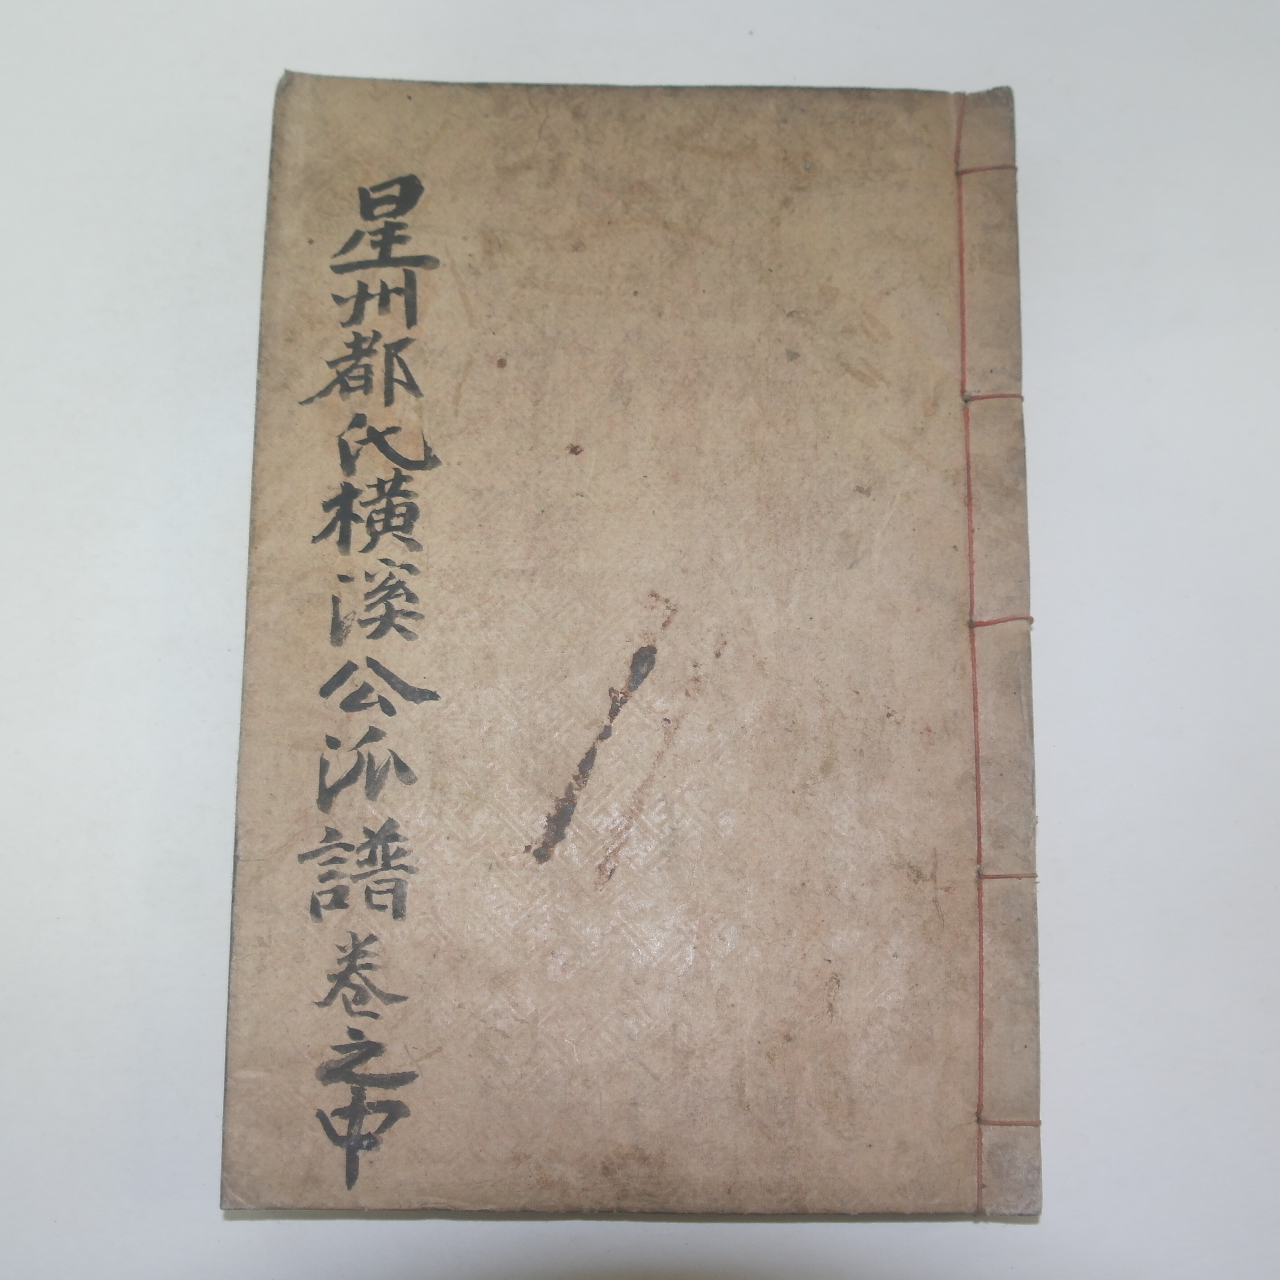 星州都氏橫溪公派譜卷之中